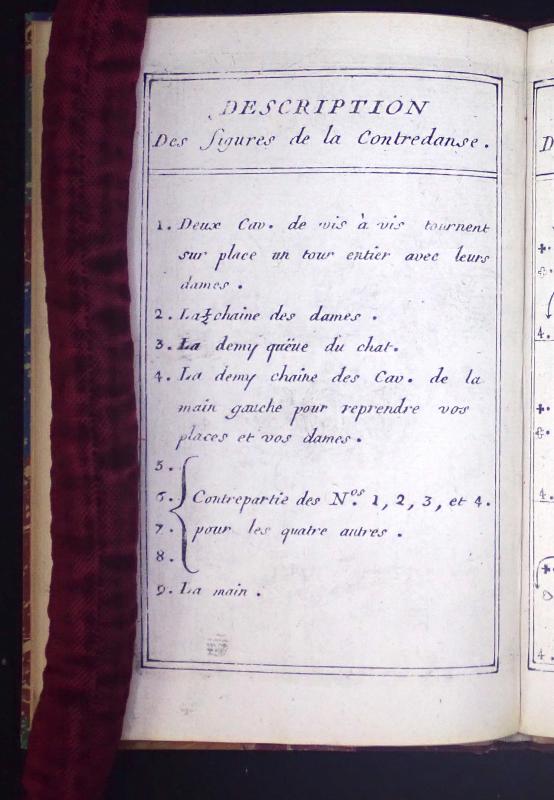 DESCRIPTION
Des figures de la Contredanse.
1. Deux Cav. de vis à vis tournent
sur place un tour entier avec leurs
dames.
2. La ½ chaine des dames.
3. La demy quëue du chat.
4. La demy chaine des Cav. de la
main gauche pour reprendre vos
places et vos dames.
5.
6. Contrepartie des Nos. 1, 2, 3, et 4.
7. pour les quatre autres.
8.
9. La main.
D
4.
4.
4.